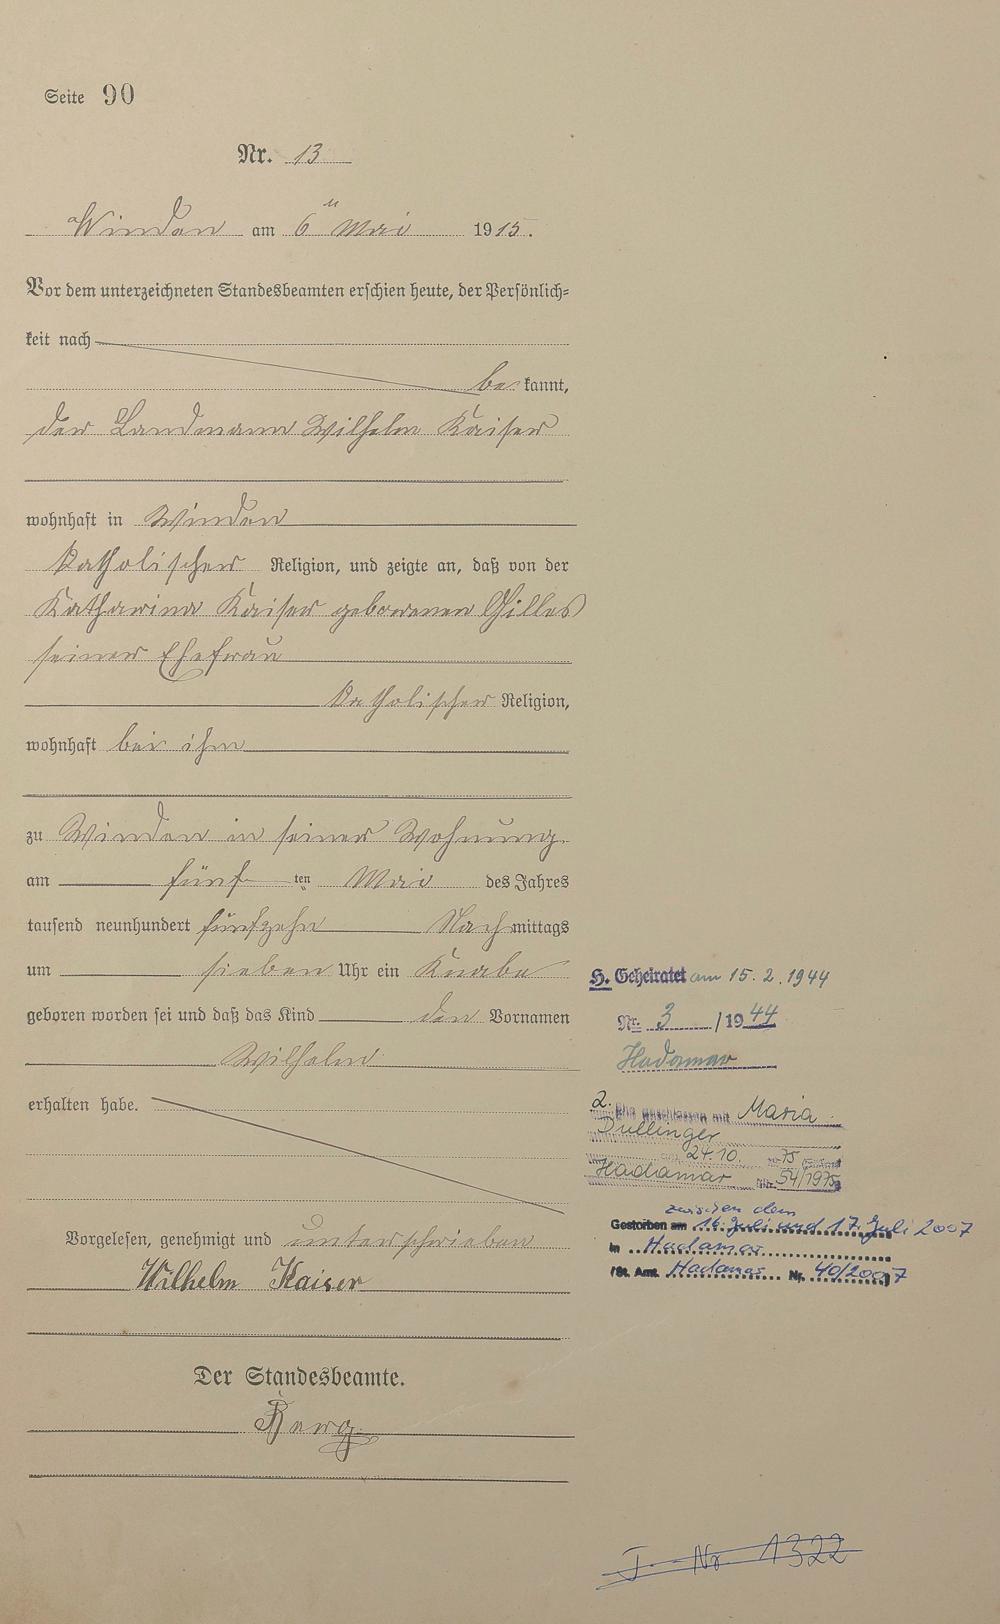 Seite 90
Nr. 13
Winden am 6ten Mai 1915.
Vor dem unterzeichneten Standesbeamten erschien heute, der Persönlich=
keit nach
be kannt,
der Landmann Wilhelm Kaiser
wohnhaft in Winden
katholischer Religion, und zeigte an, daß von der
Katharina Kaiser geborenen Gilles
seiner Ehefrau
katholischer Religion,
wohnhaft bei ihm
zu Winden in seiner Wohnung
am fünf ten Mai des Jahres
tausend neunhundert fünfzehn Nach mittags
um sieben Uhr ein Knabe
geboren worden sei und daß das Kind den Vornamen
Wilhelm
erhalten habe.
Vorgelesen, genehmigt und unterschrieben
Wilhelm Kaiser
Der Standesbeamte.
Berg
H. Geheiratet am 15.2.1944
Nr. 3 /1944
Hadamar
2. Ehe geschlossen mit Maria
Dullinger
24.10. 75
Hadamar Nr. 54/1975
zwischen dem
Gestorben am 16. Juli und 17. Juli 2007
in Hadamar
/St. Amt. Hadamar Nr. 40/2007
J. Nr. 1322